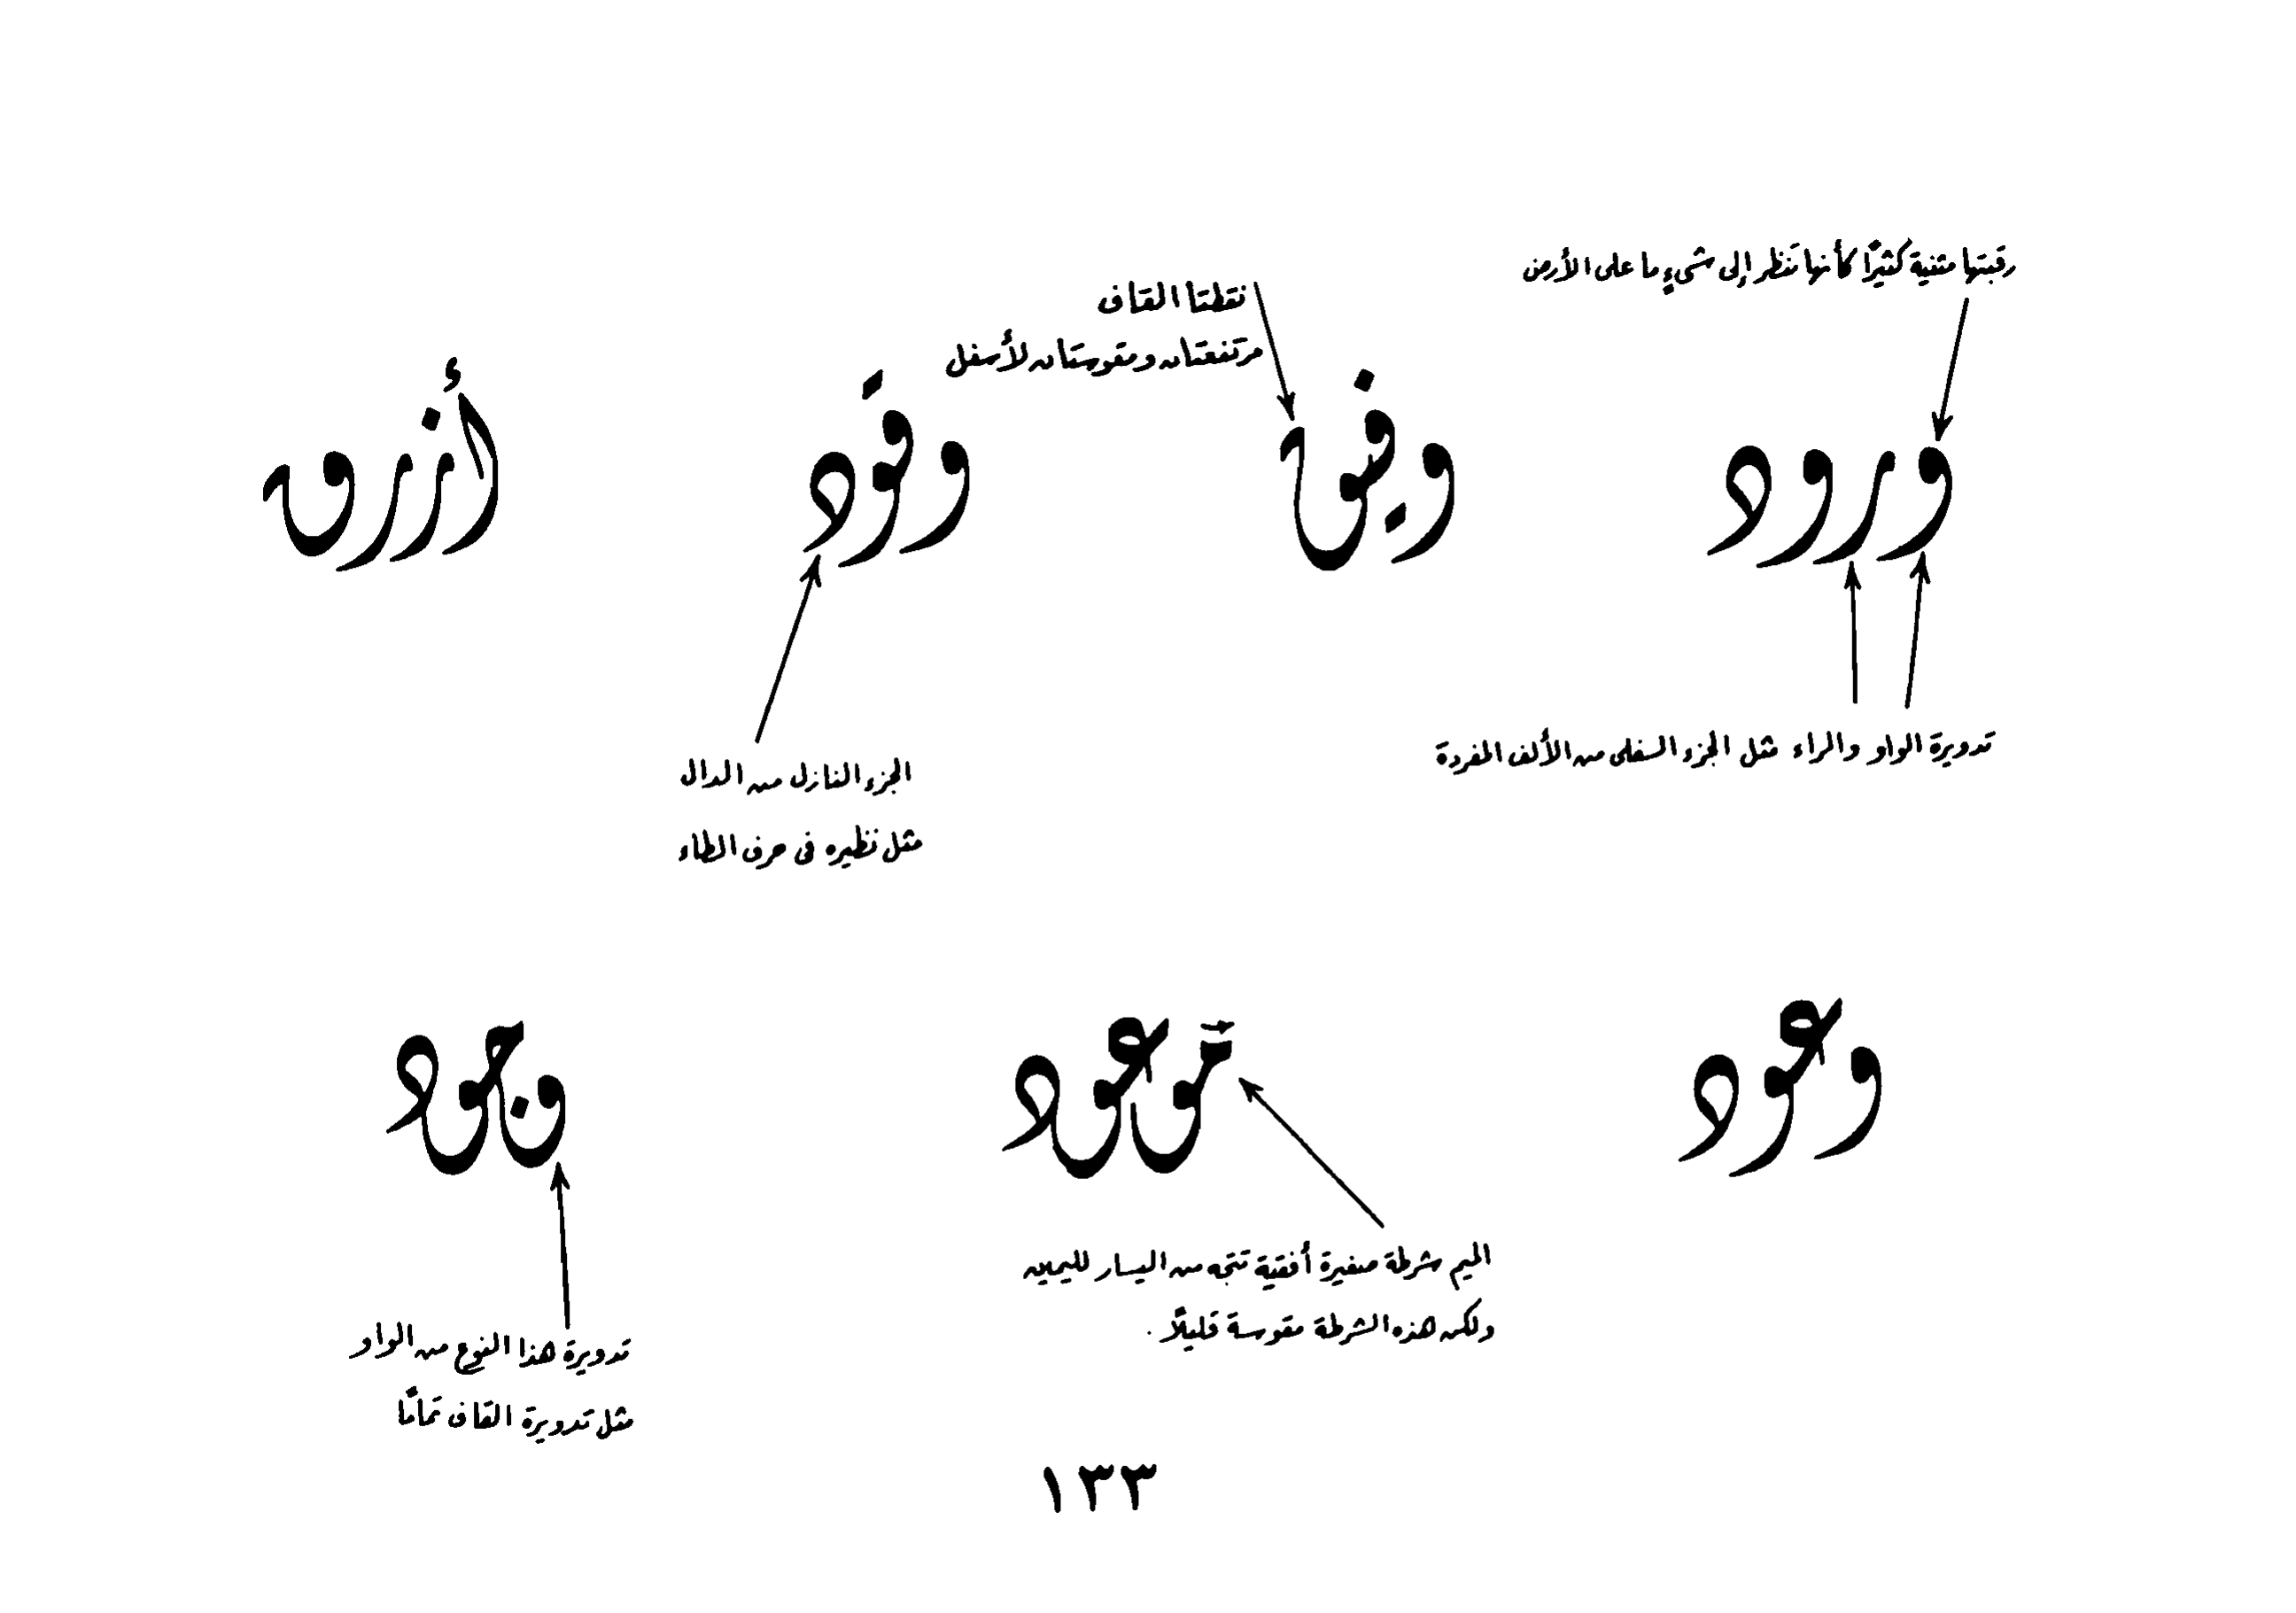 رقبتها مثنية كثيرًا كأنها تنظر إلى شيءٍ ما على الأرض
نقطتا القاف
مرتفعتان ومقوستان لأسفل
ورود
وفيق
وقود
أزرق
تدويرة الواو والراء مثل الجزء السفلى من الألف المفردة
الجزء النازل من الدال
مثل نظيره فى حرف الطاء
وعود
موعود
وجود
الميم شرطة صغيرة أفقية تتجه من اليسار لليمين
ولكن هذه الشرطة مقوسة قليلًا.
تدويرة هذا النوع من الواو
مثل تدويرة القاف تمامًا
١٣٣